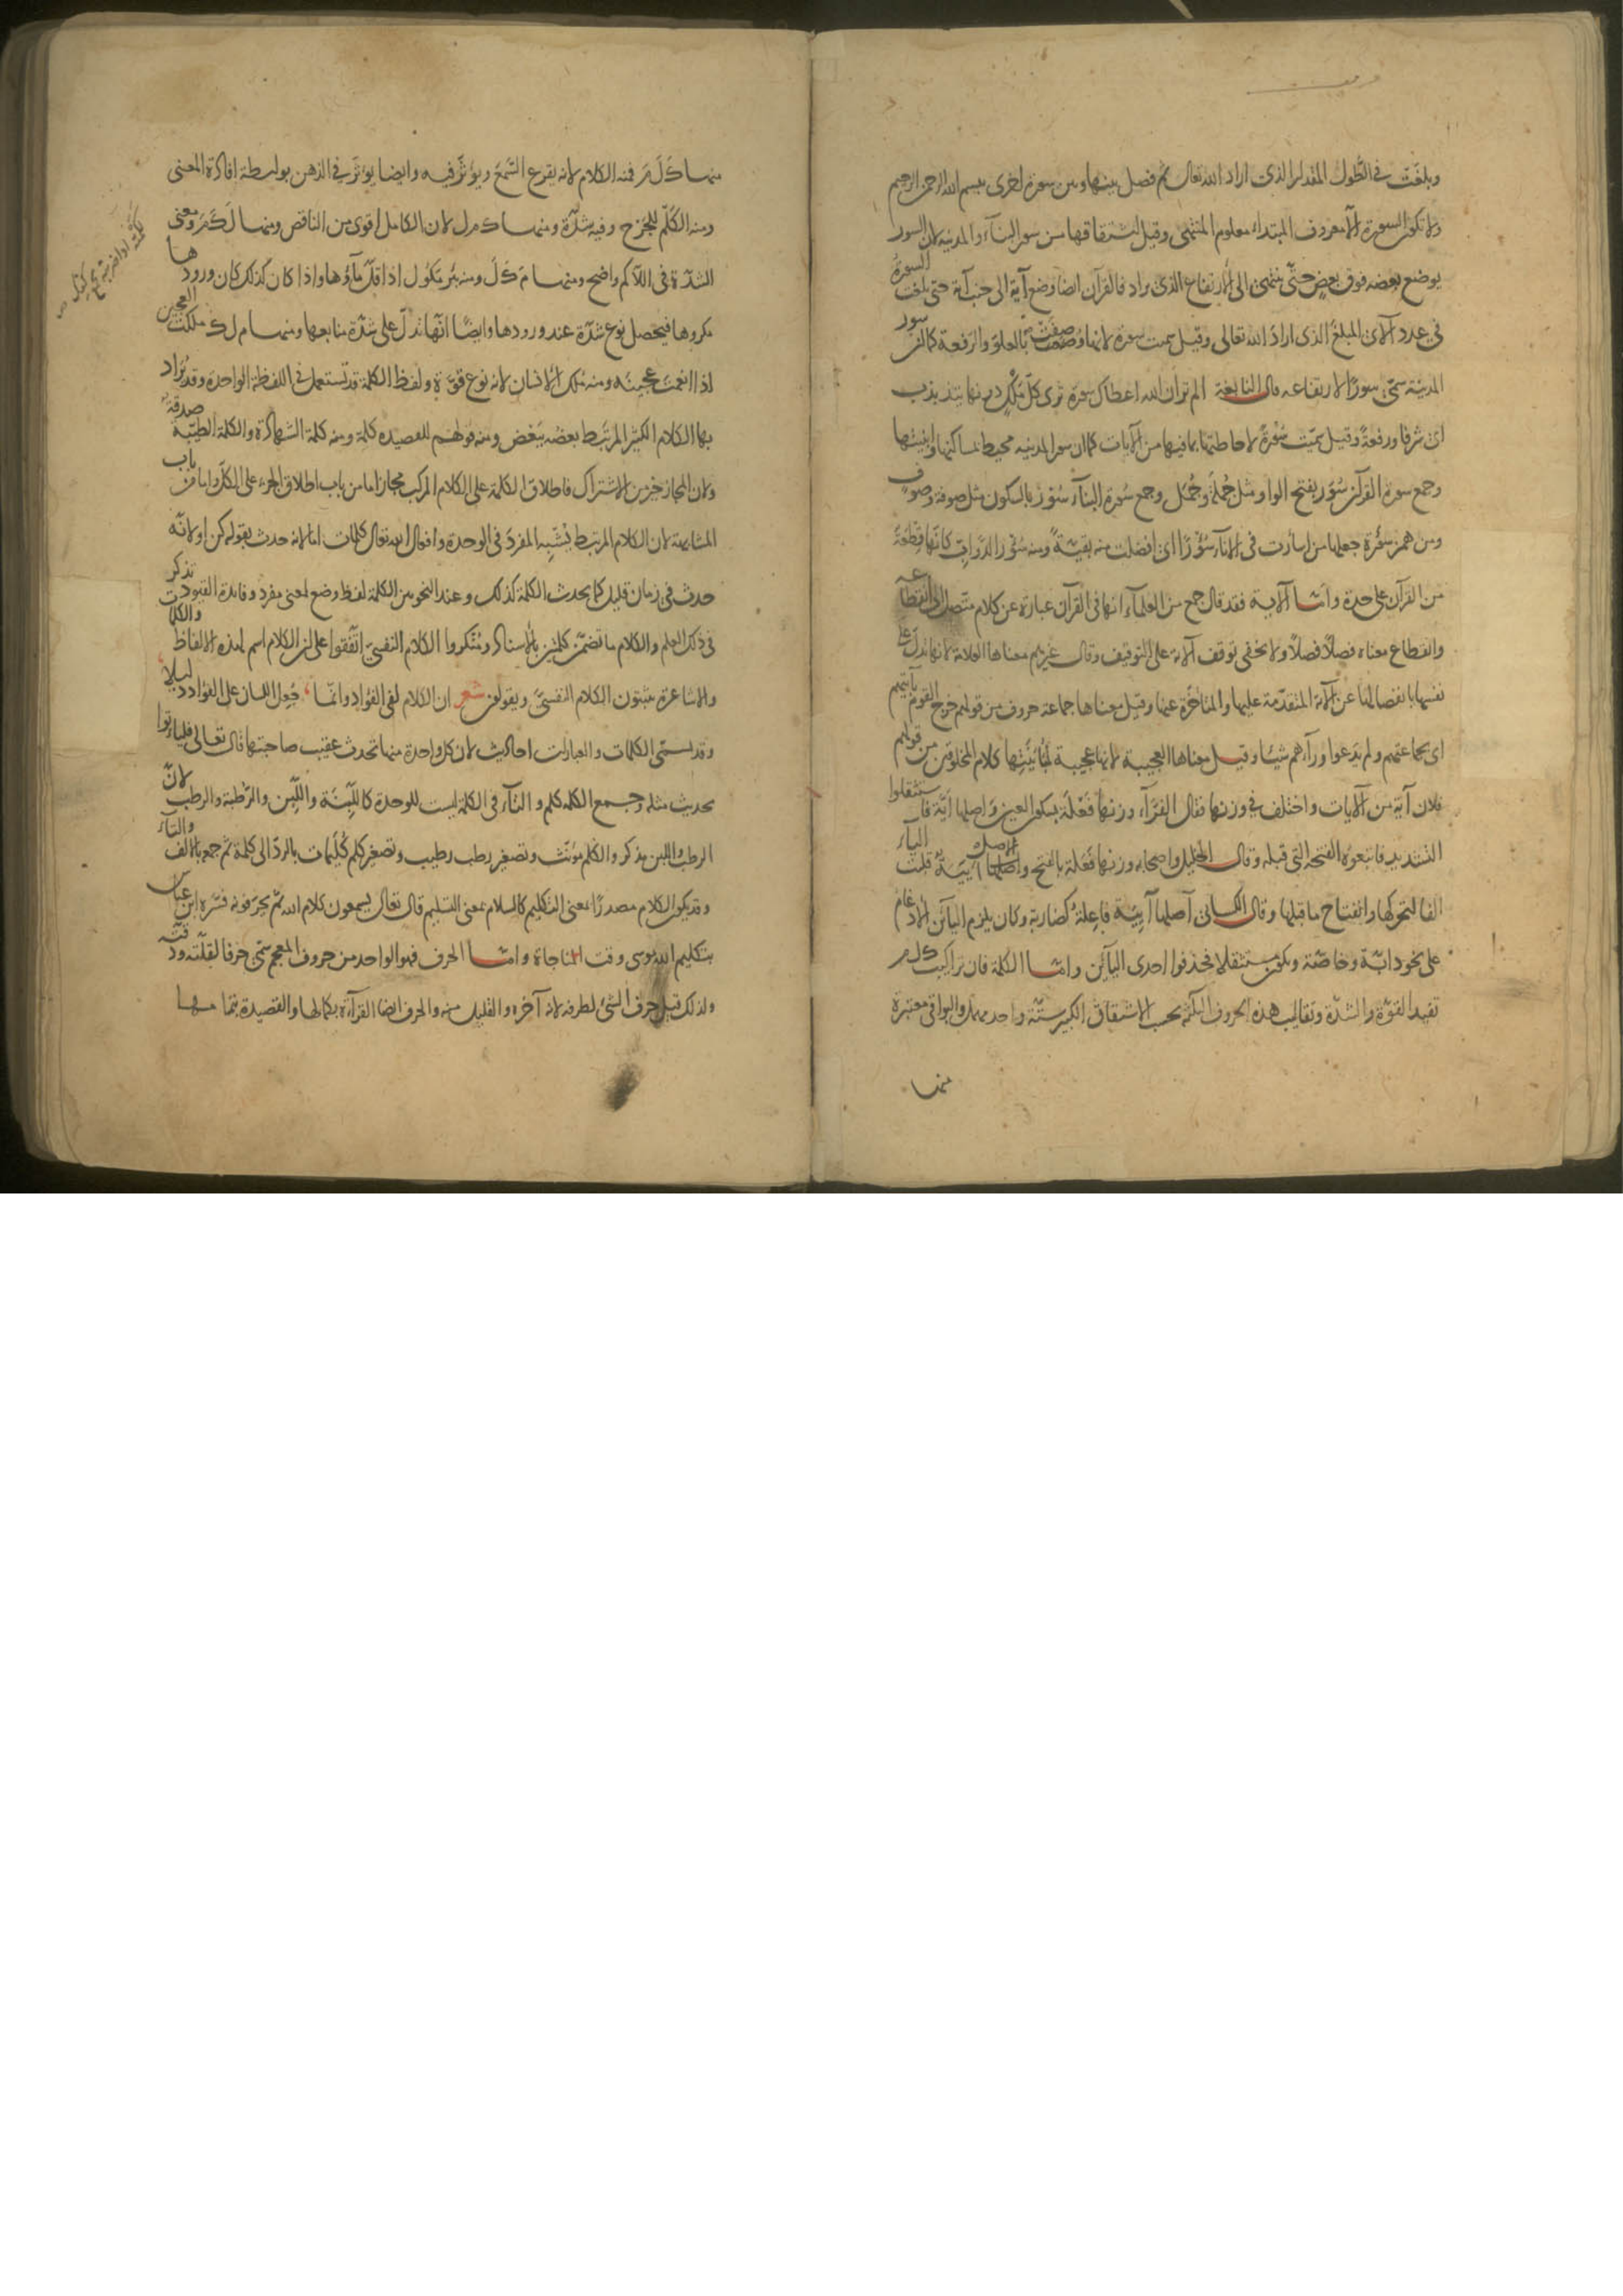 وبلغت في الطول المقدار الذي اراد الله تعالى ثم فصل بينها وبين سورة اخرى ببسم الله الرحمن الرحيم
ولا تكون السورة الا معروف المبتداء معلوم المنتهى وقيل اشتقاقها من سور البناء والمدينة لان السور
يوضع بعضه فوق بعض حتى ينتهى الى الارتفاع الذي يراد فالقرآن ايضا وضع آية الى جنب آية حتى بلغت السورة
في عدد الآي المبلغ الذي اراد الله تعالى وقيل سميت سورة لانها وصفت بالعلو والرفعة كما ان سور
المدينة سمي سورا لارتفاعه قال النابغة الم تر ان الله اعطاك سورة ترى كل ملك دونها يتذبذب
اي شرفا ورفعة وقيل سميت سورة لاحاطتها بما فيها من الآيات كما ان سور المدينه محيط بمساكنها وابنيتها
وجمع سورة القرآن سور بفتح الواو مثل جملة وجمل وجمع سورة البناء سور بالسكون مثل صوفة وصوف
ومن همز سؤرة جعلها من اسأرت في الاناء سؤرا اي افضلت منه بقية ومنه سؤر الدواب كانها قطعة
من القرآن على حدة واما الآية فقد قال جمع من العلماء انها في القرآن عبارة عن كلام متصل الى انقطاعه
وانقطاع معناه فصلا فصلا ولا يخفى توقف الآية على التوقيف وقال غيرهم معناها العلامة لانها تدل على
نفسها بانفصالها عن الآية المتقدمة عليها والمتأخرة عنها وقيل معناها جماعة حروف من قولهم خرج القوم بآيتهم
اى بجماعتهم ولم يدعوا ورآءهم شيئا وقيل معناها العجيبة لانها عجيبة لمباينتها كلام المخلوقين من قولهم
فلان آية من الآيات واختلف في وزنها فقال الفرآء وزنها فعلة بسكون العين واصلها أيّة فاستثقلوا
التشديد فاتبعوه الفتحة التي قبله وقال الخليل واصحابه وزنها فعلة بالفتح والاصل أيية قلبت الياء
الفا لتحركها وانفتاح ما قبلها وقال الكسائى اصلها آيية فاعلة كضاربة وكان يلزم اليائين الادغام
على نحو دابّة وخاصّة ويكون مستثقلا فحذفوا احدى اليائين واما الكلمة فان تراكيب ك ل م
تفيد القوة والشدة وتقاليب هذه الحروف الثلثة بحسب الاشتقاق الكبير ستة واحد مهمل والبواقي معتبرة
منها
منها ك ل م فمنه الكلام لانه يقرع السمع ويؤثر فيه وايضا يؤثر في الذهن بواسطة افادة المعنى
ومنه الكلم للجرح وفيه شدّة ومنها ك م ل لان الكامل اقوى من الناقص ومنها ل ك م ومعنى
الشدة في اللكم واضح ومنها م ك ل ومنه بئر مكول اذا قلّ مآؤها واذا كان كذلك كان ورودها
مكروها فيحصل نوع شدّة عند ورودها وايضا انها تدل على شدّة منابعها ومنها م ل ك ملكت العجين
اذا انعمت عجينه ومنه ملك الانسان لانه نوع قوّة ولفظ الكلمة قد تستعمل في اللفظة الواحدة وقد يراد
بها الكلام الكثير المرتبط بعضه ببعض ومنه قولهم للقصيده كلمة ومنه كلمة الشهادة والكلمة الطيبة صدقة
ولان المجاز خير من الاشتراك فاطلاق الكلمة على الكلام المركب مجاز اما من باب اطلاق الجزء على الكل واما من باب
المشابهة لان الكلام المرتبط يشبه المفرد في الوحدة وافعال الله تعالى كلمات اما لانه حدث بقوله كن او لانه
حدث في زمان قليل كما يحدث الكلمة كذلك وعند النحويين الكلمة لفظ وضع لمعنى مفرد وفائدة القيود تذكر
في ذلك العلم والكلام ما تضمن كلمتين بالاسناد ومنكروا الكلام النفسيّ اتفقوا على ان الكلام اسم لهذه الالفاظ والكلمات
والاشاعرة يثبتون الكلام النفسيّ ويقولون شعر ان الكلام لفي الفؤاد وانما جعل اللسان على الفؤاد دليلا
وقد يسمى الكلمات والعبارات احاديث لان كل واحدة منها تحدث عقيب صاحبتها قال تعالى فلياتوا
بحديث مثله وجمع الكلمه كلم والتآء في الكلمة ليست للوحدة كاللبنة واللبن والرطبة والرطب لان
الرطب واللبن مذكر والكلم مؤنث وتصغير رطب رطيب وتصغير كلم كليمات بالردّ الى كلمة ثم جمعه بالالف والتاء
وقد يكون الكلام مصدرا بمعنى التكليم كالسلام بمعنى التسليم قال تعالى يسمعون كلام الله ثم يحرفونه فسره ابن عباس
بتكليم الله موسى وقت المناجاة واما الحرف فهو الواحد من حروف المعجم سمي حرفا لقلّته ودقته
ولذلك قيل حرف الشئ لطرفه لانه آخره والقليل منه والحرف ايضا القرآءة بكمالها والقصيدة بتمامها